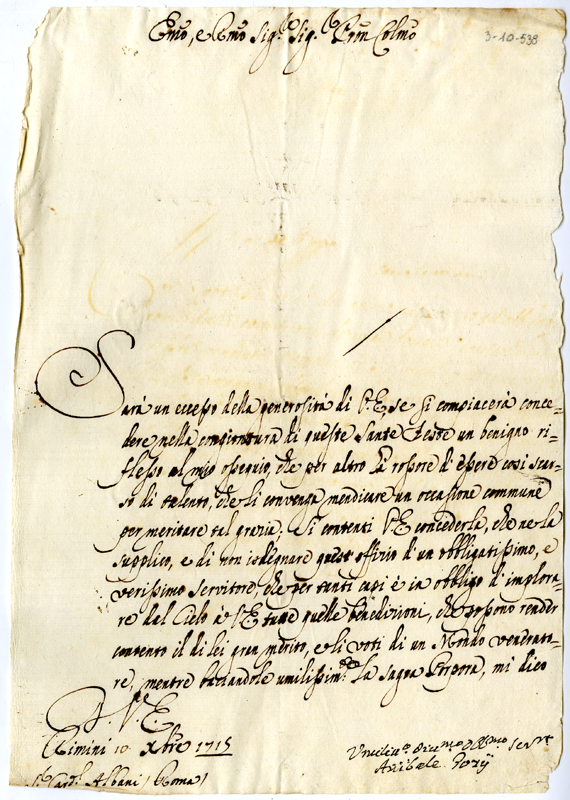 Emo, e Rmo Sig.r Sig.r Pron Colmo
3-10-538
Sarà un eccesso della generosità di V.E. se si compiacerà conce-
dere nella congiontura di queste Sante Feste un benigno ri-
flesso al mio ossequio, che per altro hà rossore di essere così scar-
so di talento, che li convenga mendicare un occasione commune
per meritare tal grazia: Si contenti V.E. concederla, che ne la
supplico, e di non isdegnare quest offizio d'un obbligatissimo, e
verissimo servitore, che per tanti capi è in obbligo d'implora-
re dal Cielo à V.E. tutte quelle benedizioni, che possono render
contento il di lei gran merito, e li voti di un Mondo venerato-
re, mentre baciandole umilissim.te la sagra Porpora, mi dico
D. V. E.
Rimini 10 Xbre 1715
Umiliss.o Obblmo Serv.re
S.r Card.l Albani (Roma)
Anibale